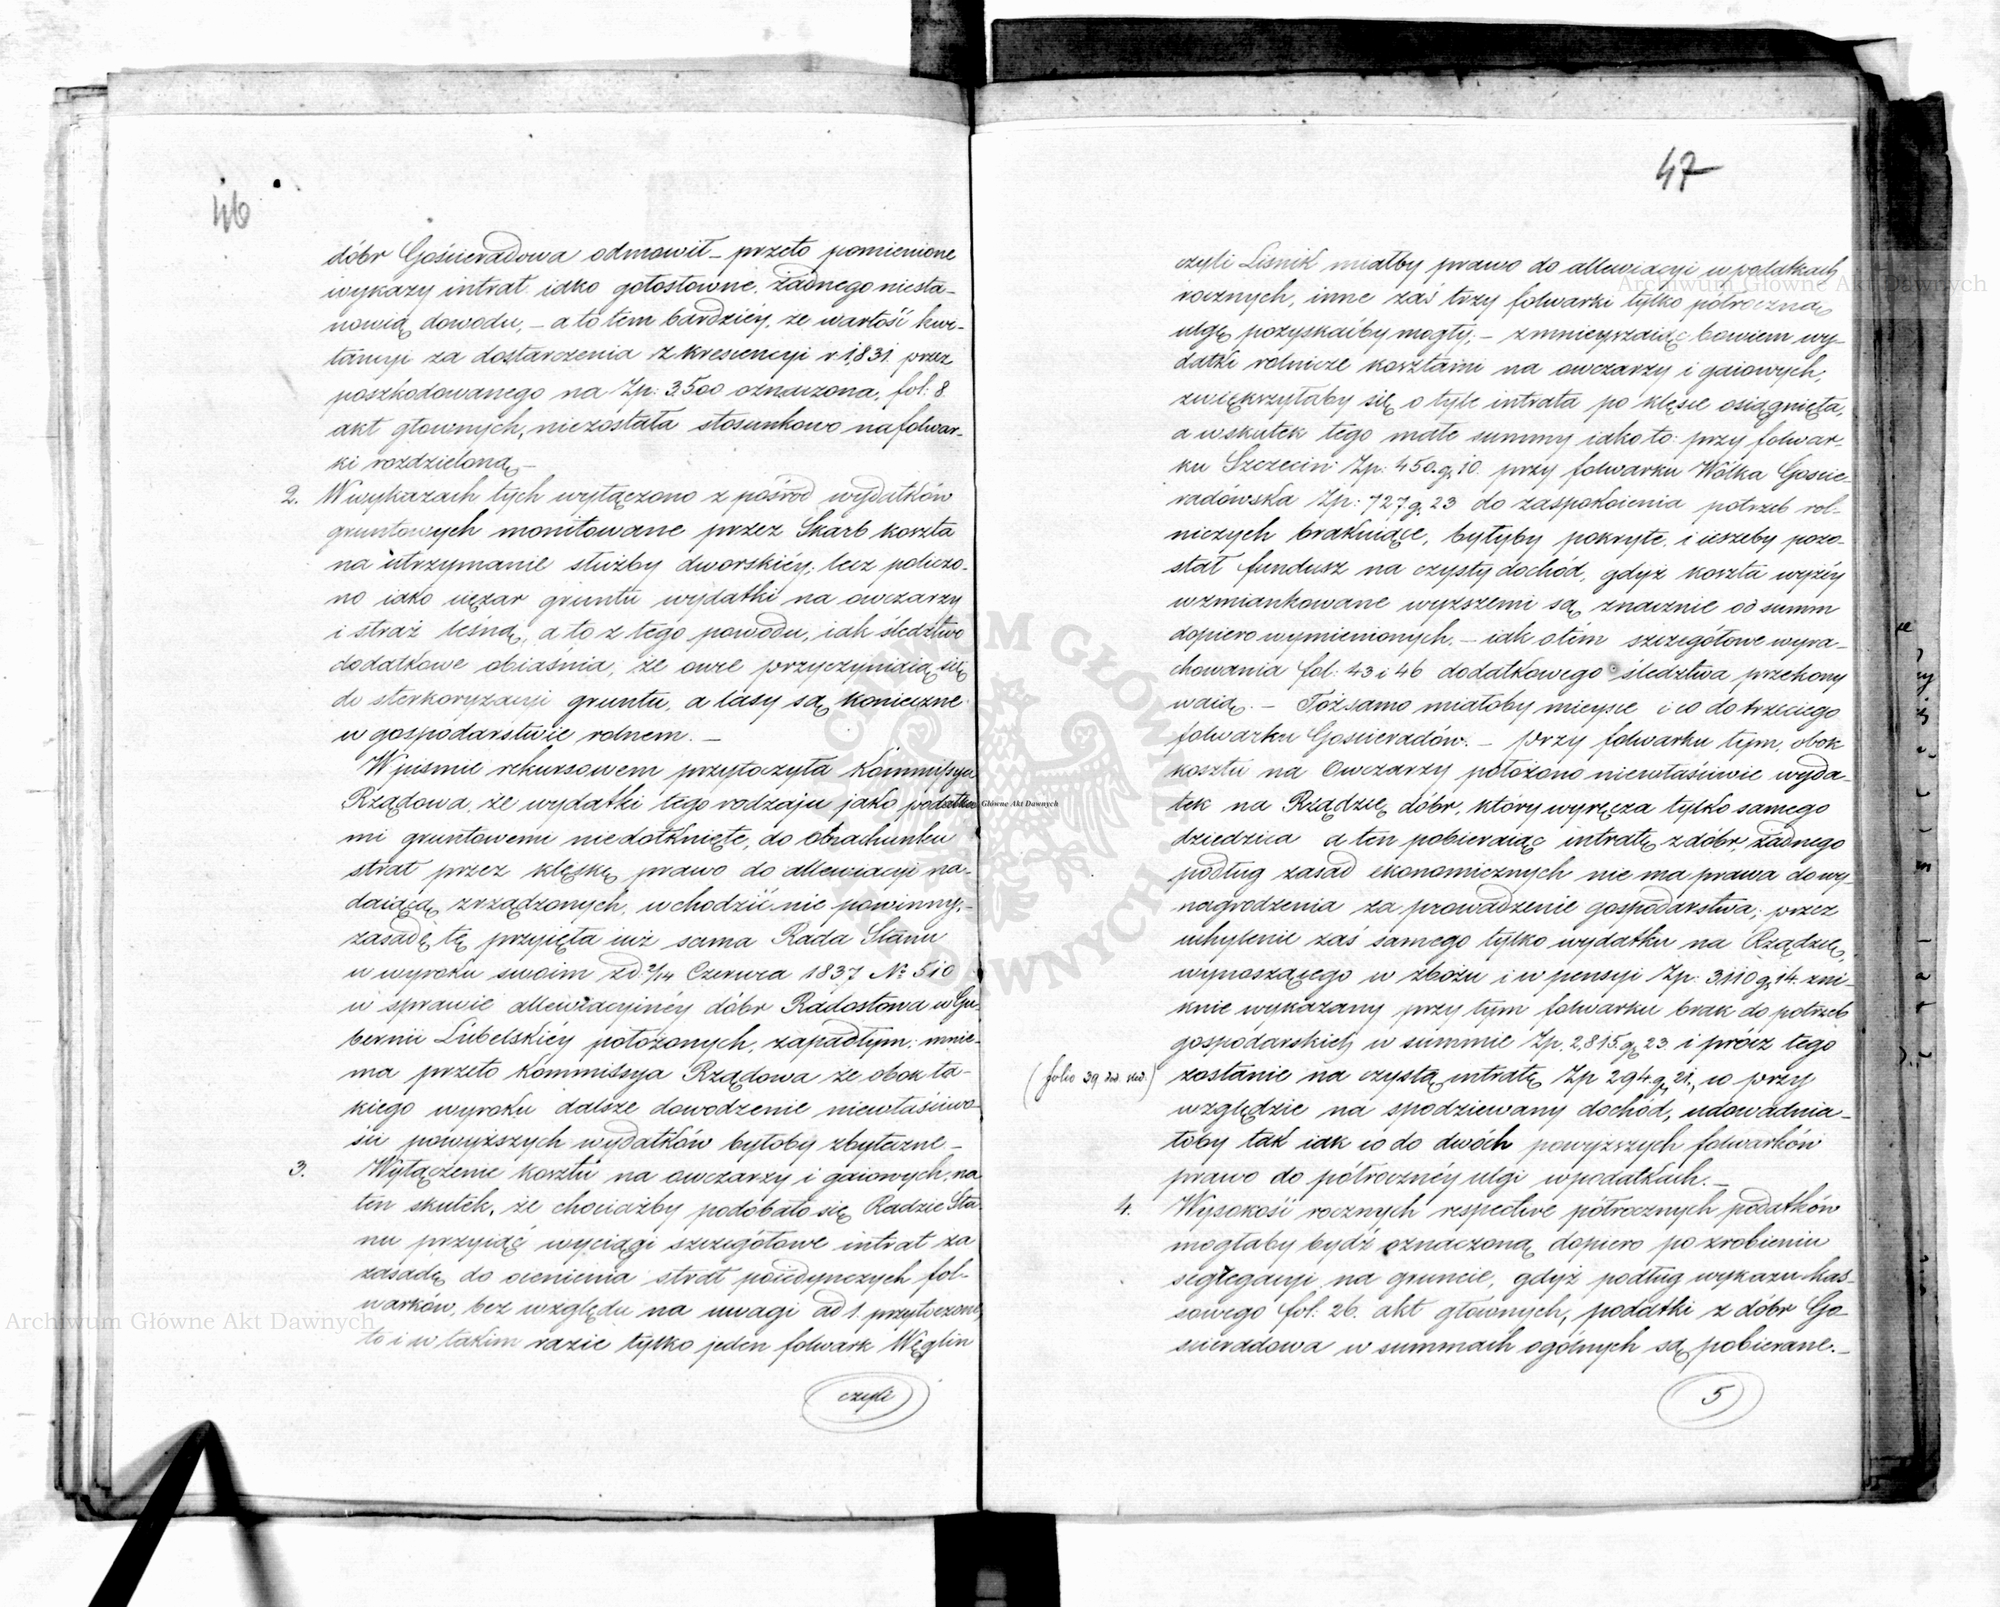 46
dóbr Gościeradowa odmowił – przeto pomienione
wykazy intrat iako gołosłowne, żadnego niesta-
nowią dowodu, – a to tem bardziéy, że wartość kwi-
tancyi za dostarczenia z krescencyi r. 1831 przez
poszkodowanego na Zp: 3500 oznaczona, fol: 8
akt głownych, niezostała stosunkowo na folwar-
ki rozdzieloną –
2. W wykazach tych wyłączono z pośród wydatków
gruntowych monitowane przez Skarb koszta
na utrzymanie służby dworskiéy; lecz policzo-
no iako ciężar gruntu wydatki na owczarzy
i straż leśną, a to z tego powodu, iak śledztwo
dodatkowe obiaśnia, że owce przyczyniaią się
do sterkoryzacyi gruntu, a lasy są konieczne
w gospodarstwie rolnem. –
W piśmie rekursowem przytoczyła Kommissya
Rządowa, że wydatki tego rodzaju jako podatka-
mi gruntowemi niedotknięte, do obrachunku
strat przez klęskę prawo do allewiacyi na-
daiącą zrządzonych, wchodzić nie powinny, –
zasadę tę przyięta iuż sama Rada Stanu
w wyroku swoim z d. 2/14 Czerwca 1837 № 510
w sprawie allewiacyinéy dóbr Radostowa w Gu-
bernii Lubelskiéy położonych, zapadłym; mnie-
ma przeto Kommissya Rządowa że obok ta-
kiego wyroku dalsze dowodzenie niewłaściwo-
ści powyższych wydatków byłoby zbyteczne –
3. Wyłączenie kosztu na owczarzy i gaiowych, na
ten skutek, że chociażby podobało się Radzie Sta-
nu przyiąć wyciągi szczegółowe intrat za
zasadę do ocenienia strat poiedynczych fol-
warków, bez względu na uwagi ad 1. przytoczone,
to i w takim razie tylko jeden folwark Węglin
czyli
47
czyli Liśnik miałby prawo do allewiacyi w podatkach
rocznych, inne zaś trzy folwarki tylko półroczną
ulgę pozyskaćby mogły; – zmnieyszaiąc bowiem wy-
datki rolnicze kosztami na owczarzy i gaiowych,
zwiększyłaby się o tyle intrata po klęsce osiągnięta,
a w skutek tego małe summy iako to: przy folwar-
ku Szczecin Zp: 450. g. 10. przy folwarku Wólka Goscie-
radówska Zp: 727 g. 23 do zaspokoienia potrzeb rol-
niczych brakuiące, byłyby pokryte, i ieszcby pozo-
stał fundusz na czysty dochód, gdyż koszta wyżéy
wzmiankowane wyższemi są znacznie od summ
dopiero wymienionych, – iak o tém szczegółowe wyra-
chowania fol: 43 i 46 dodatkowego śledztwa przekony
waią. – Toż samo miałoby mieysce i co do trzeciego
folwarku Gościeradów. – Przy folwarku tym, obok
kosztu na Owczarzy położono niewłaściwie wyda-
tek na Rządzcę dóbr, który wyręcza tylko samego
dziedzica a ten pobieraiąc intratę z dóbr, żadnego
podług zasad ekonomicznych nie ma prawa do wy-
nagrodzenia za prowadzenie gospodarstwa; przez
uchylenie zaś samego tylko wydatku na Rządzcę,
wynoszącego w zbożu i w pensyi Zp: 3,110 g. 14. zni-
knie wykazany przy tym folwarku brak do potrzeb
gospodarskich w summie Zp. 2,815. g. 23. i prócz tego
(folio 39 dod. śled.) zostanie na czystą intratę Zp 294. g. 21., co przy
względzie na spodziewany dochód, udowadnia-
łoby tak iak co do dwóch powyższych folwarków
prawo do półrocznéy ulgi w podatkach. –
4. Wysokość rocznych respective półrocznych podatków
mogłaby bydź oznaczoną dopiero po zrobieniu
segregacyi na gruncie, gdyż podług wykazu kas-
sowego fol: 26. akt głownych, podatki z dóbr Go-
scieradowa w summach ogólnych są pobierane. –
5
Archiwum Główne Akt Dawnych